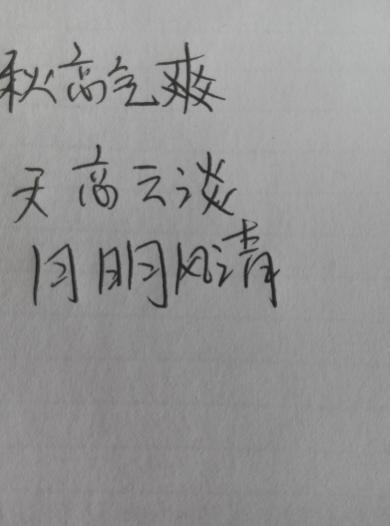 秋高气爽
天高云淡
月明风清